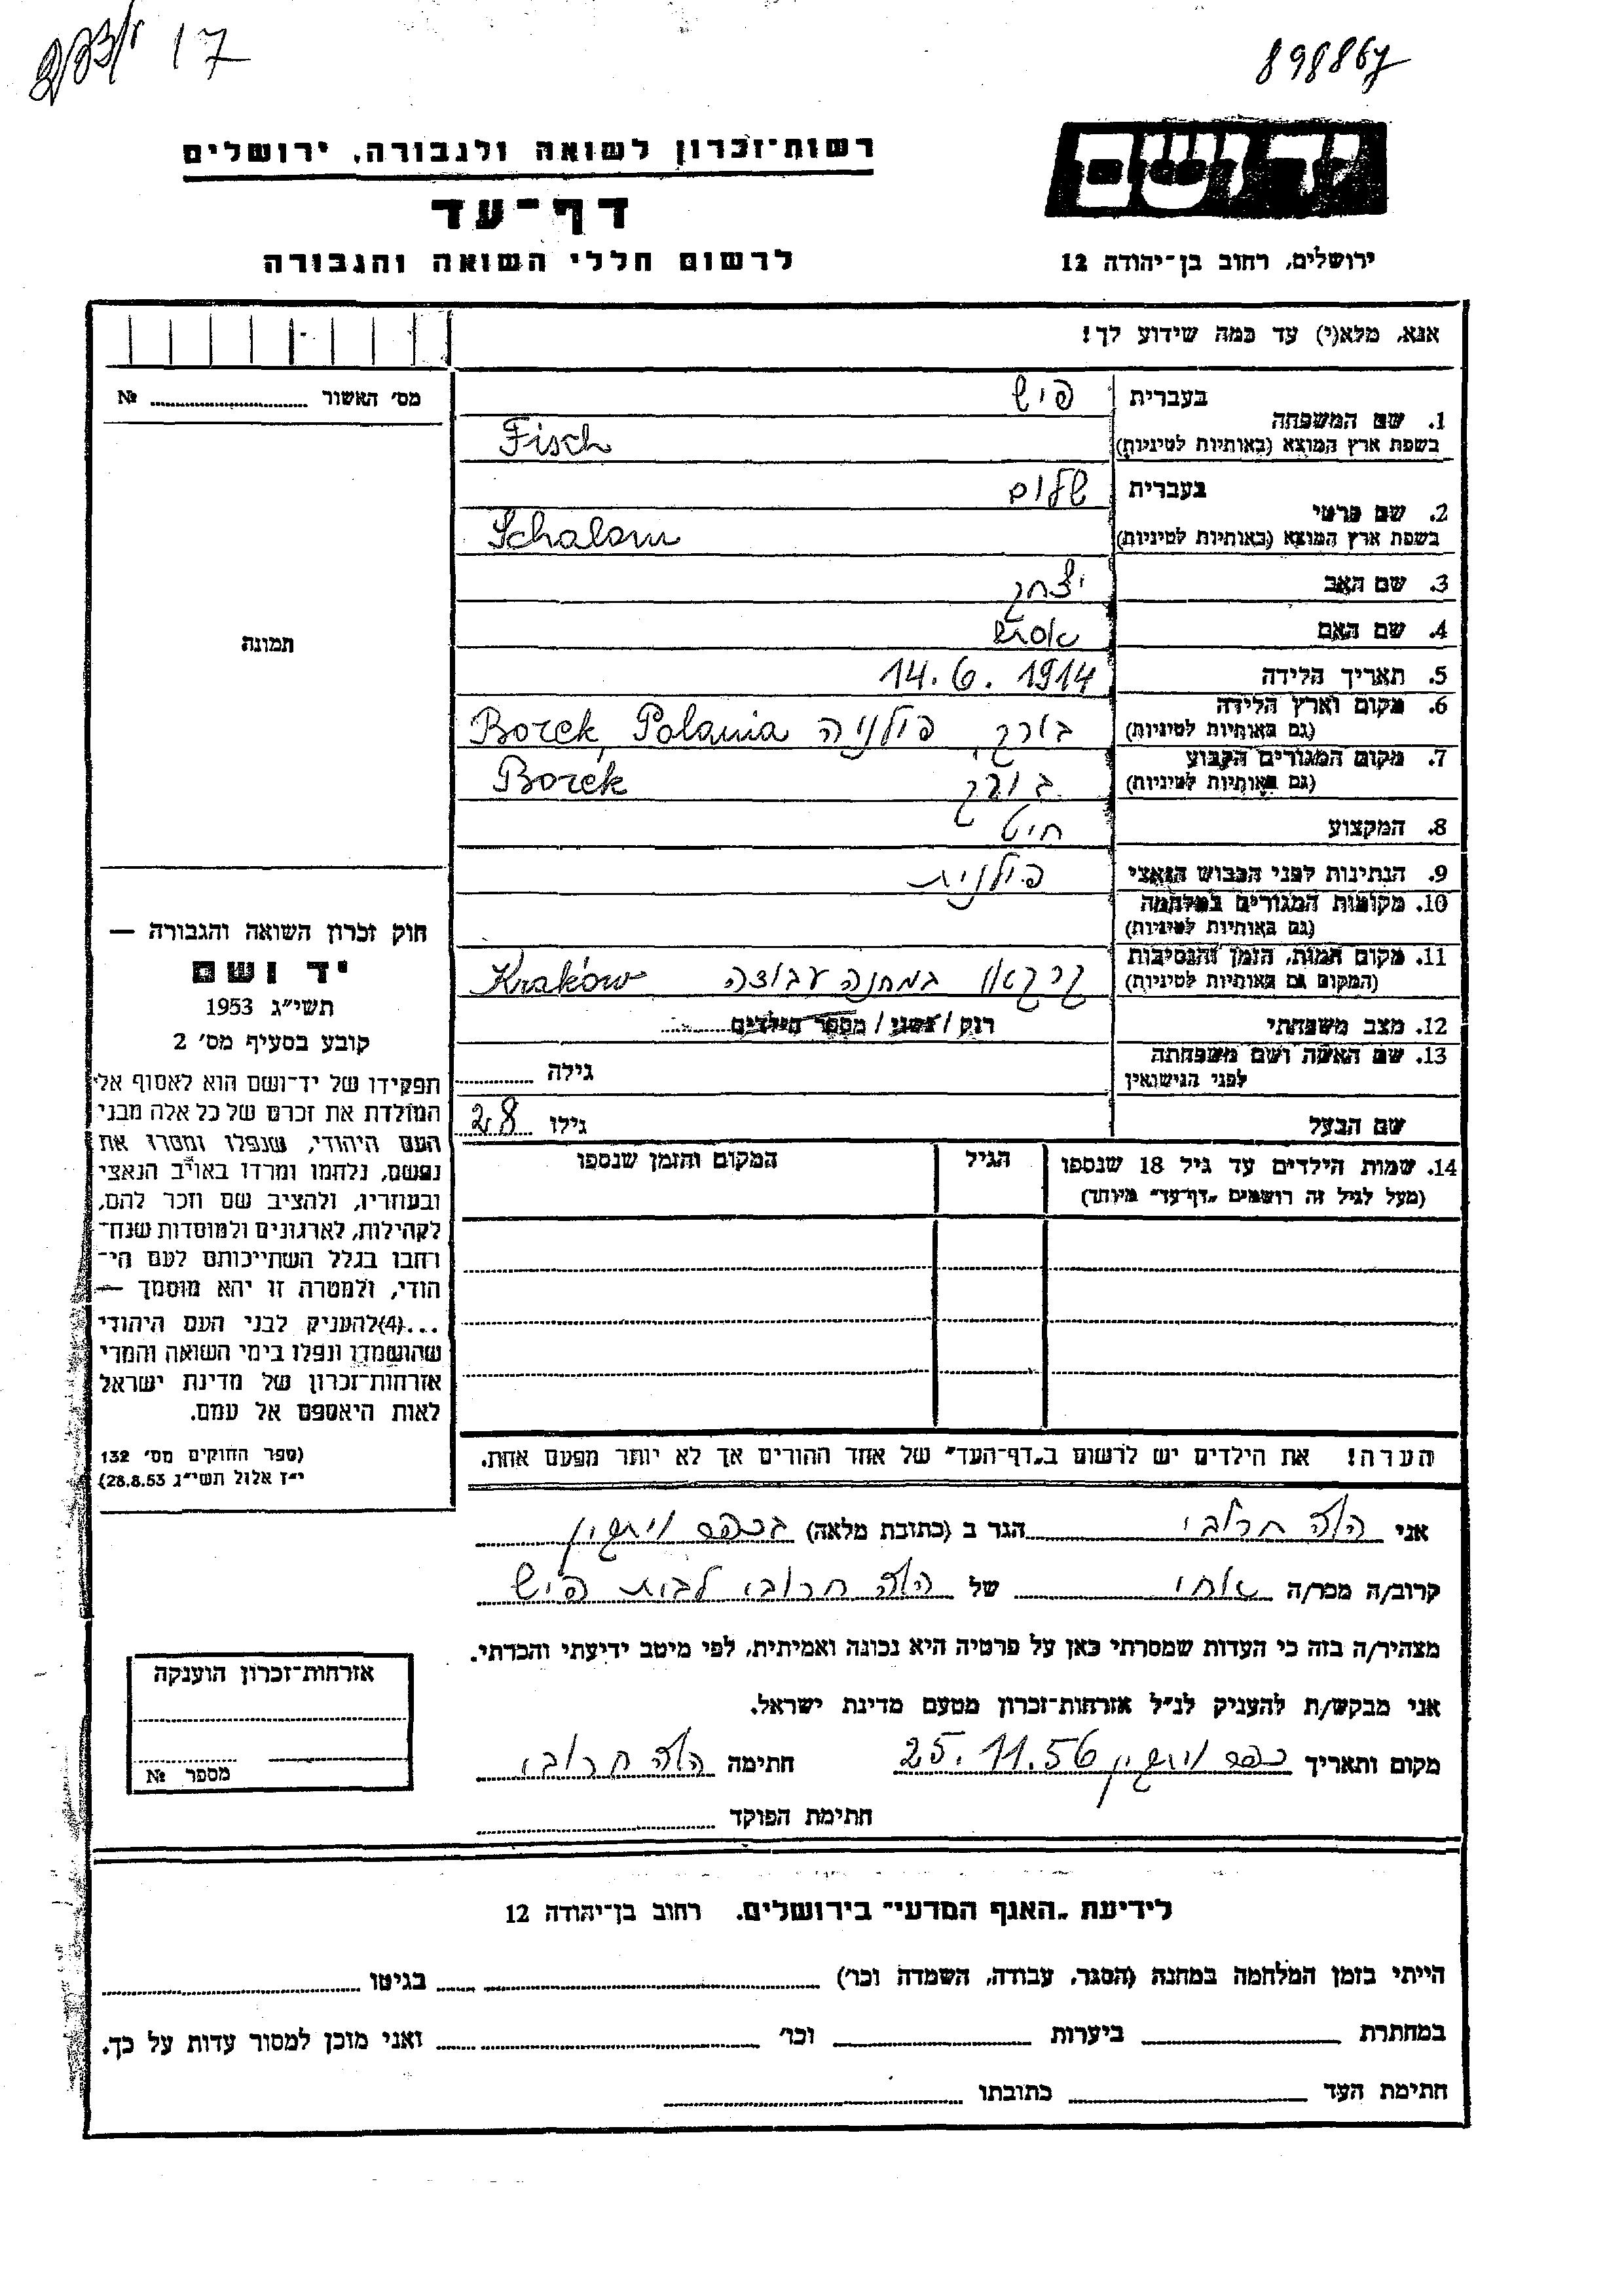 17
898867
רשות־זכרון לשואה ולגבורה, ירושלים
יד ושם
דף־עד
לרשום חללי השואה והגבורה
ירושלים, רחוב בן־יהודה 12
אנא, מלא(י) עד כמה שידוע לך!
מס׳ האשור №
1. שם המשפחה
בעברית פיש
בשפת ארץ המוצא (באותיות לטיניות) Fisch
2. שם פרטי
בעברית שלום
בשפת ארץ המוצא (באותיות לטיניות) Schalom
3. שם האב יצחק
4. שם האם אסתר
5. תאריך הלידה 14.6.1914
6. מקום וארץ הלידה
(גם באותיות לטיניות) בורק, פולניה Borek, Polania
7. מקום המגורים הקבוע
(גם באותיות לטיניות) בורק Borek
8. המקצוע חיט
9. הנתינות לפני הכבוש הנאצי פולנית
10. מקומות המגורים במלחמה
(גם באותיות לטיניות)
11. מקום המות, הזמן והנסיבות
(המקום גם באותיות לטיניות) קרקאו במחנה עבודה Kraków
12. מצב משפחתי רוק / נשוי / מספר הילדים
13. שם האשה ושם משפחתה
לפני הנישואין גילה
שם הבעל גילו 28
14. שמות הילדים עד גיל 18 שנספו הגיל המקום והזמן שנספו
(מעל לגיל זה רושמים „דף־עד" מיוחד)
הערה! את הילדים יש לרשום ב„דף־העד" של אחד ההורים אך לא יותר מפעם אחת.
תמונה
חוק זכרון השואה והגבורה —
יד ושם
תשי״ג 1953
קובע בסעיף מס׳ 2
תפקידו של יד־ושם הוא לאסוף אל
המולדת את זכרם של כל אלה מבני
העם היהודי, שנפלו ומסרו את
נפשם, נלחמו ומרדו באויב הנאצי
ובעוזריו, ולהציב שם וזכר להם,
לקהילות, לארגונים ולמוסדות שנח־
רבו בגלל השתייכותם לעם הי־
הודי, ולמטרה זו יהא מוסמך —
...(4)להעניק לבני העם היהודי
שהושמדו ונפלו בימי השואה והמרי
אזרחות־זכרון של מדינת ישראל
לאות היאספם אל עמם.
(ספר החוקים מס׳ 132
י״ז אלול תשי״ג 28.8.53)
אני חרובי הגר ב (כתובת מלאה) בכפר
קרוב/ה מכר/ה אחי של חרובי לבית פיש
מצהיר/ה בזה כי העדות שמסרתי כאן על פרטיה היא נכונה ואמיתית, לפי מיטב ידיעתי והכרתי.
אני מבקש/ת להעניק לנ״ל אזרחות־זכרון מטעם מדינת ישראל.
מקום ותאריך כפר 25.11.56 חתימה חרובי
חתימת הפוקד
אזרחות־זכרון הוענקה
מספר №
לידיעת „האגף המדעי״ בירושלים, רחוב בן־יהודה 12
הייתי בזמן המלחמה במחנה (הסגר, עבודה, השמדה וכו׳) בגיטו
במחתרת ביערות וכו׳ ואני מוכן למסור עדות על כך.
חתימת העד כתובתו